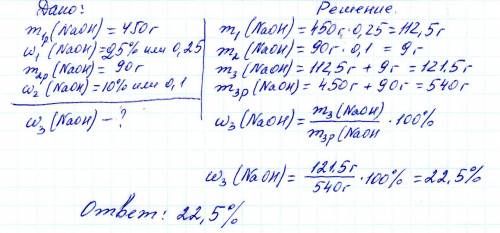 Дано:
m₁р(NaOH) = 450г
ω₁(NaOH) = 25% или 0,25
m₂р(NaOH) = 90г
ω₂(NaOH) = 10% или 0,1
ω₃(NaOH) – ?
Решение.
m₁(NaOH) = 450г · 0,25 = 112,5г
m₂(NaOH) = 90г · 0,1 = 9г
m₃(NaOH) = 112,5г + 9г = 121,5г
m₃р(NaOH) = 450г + 90г = 540г
ω₃(NaOH) = m₃(NaOH) / m₃р(NaOH · 100%
ω₃(NaOH) = 121,5г / 540г · 100% = 22,5%
Ответ: 22,5%